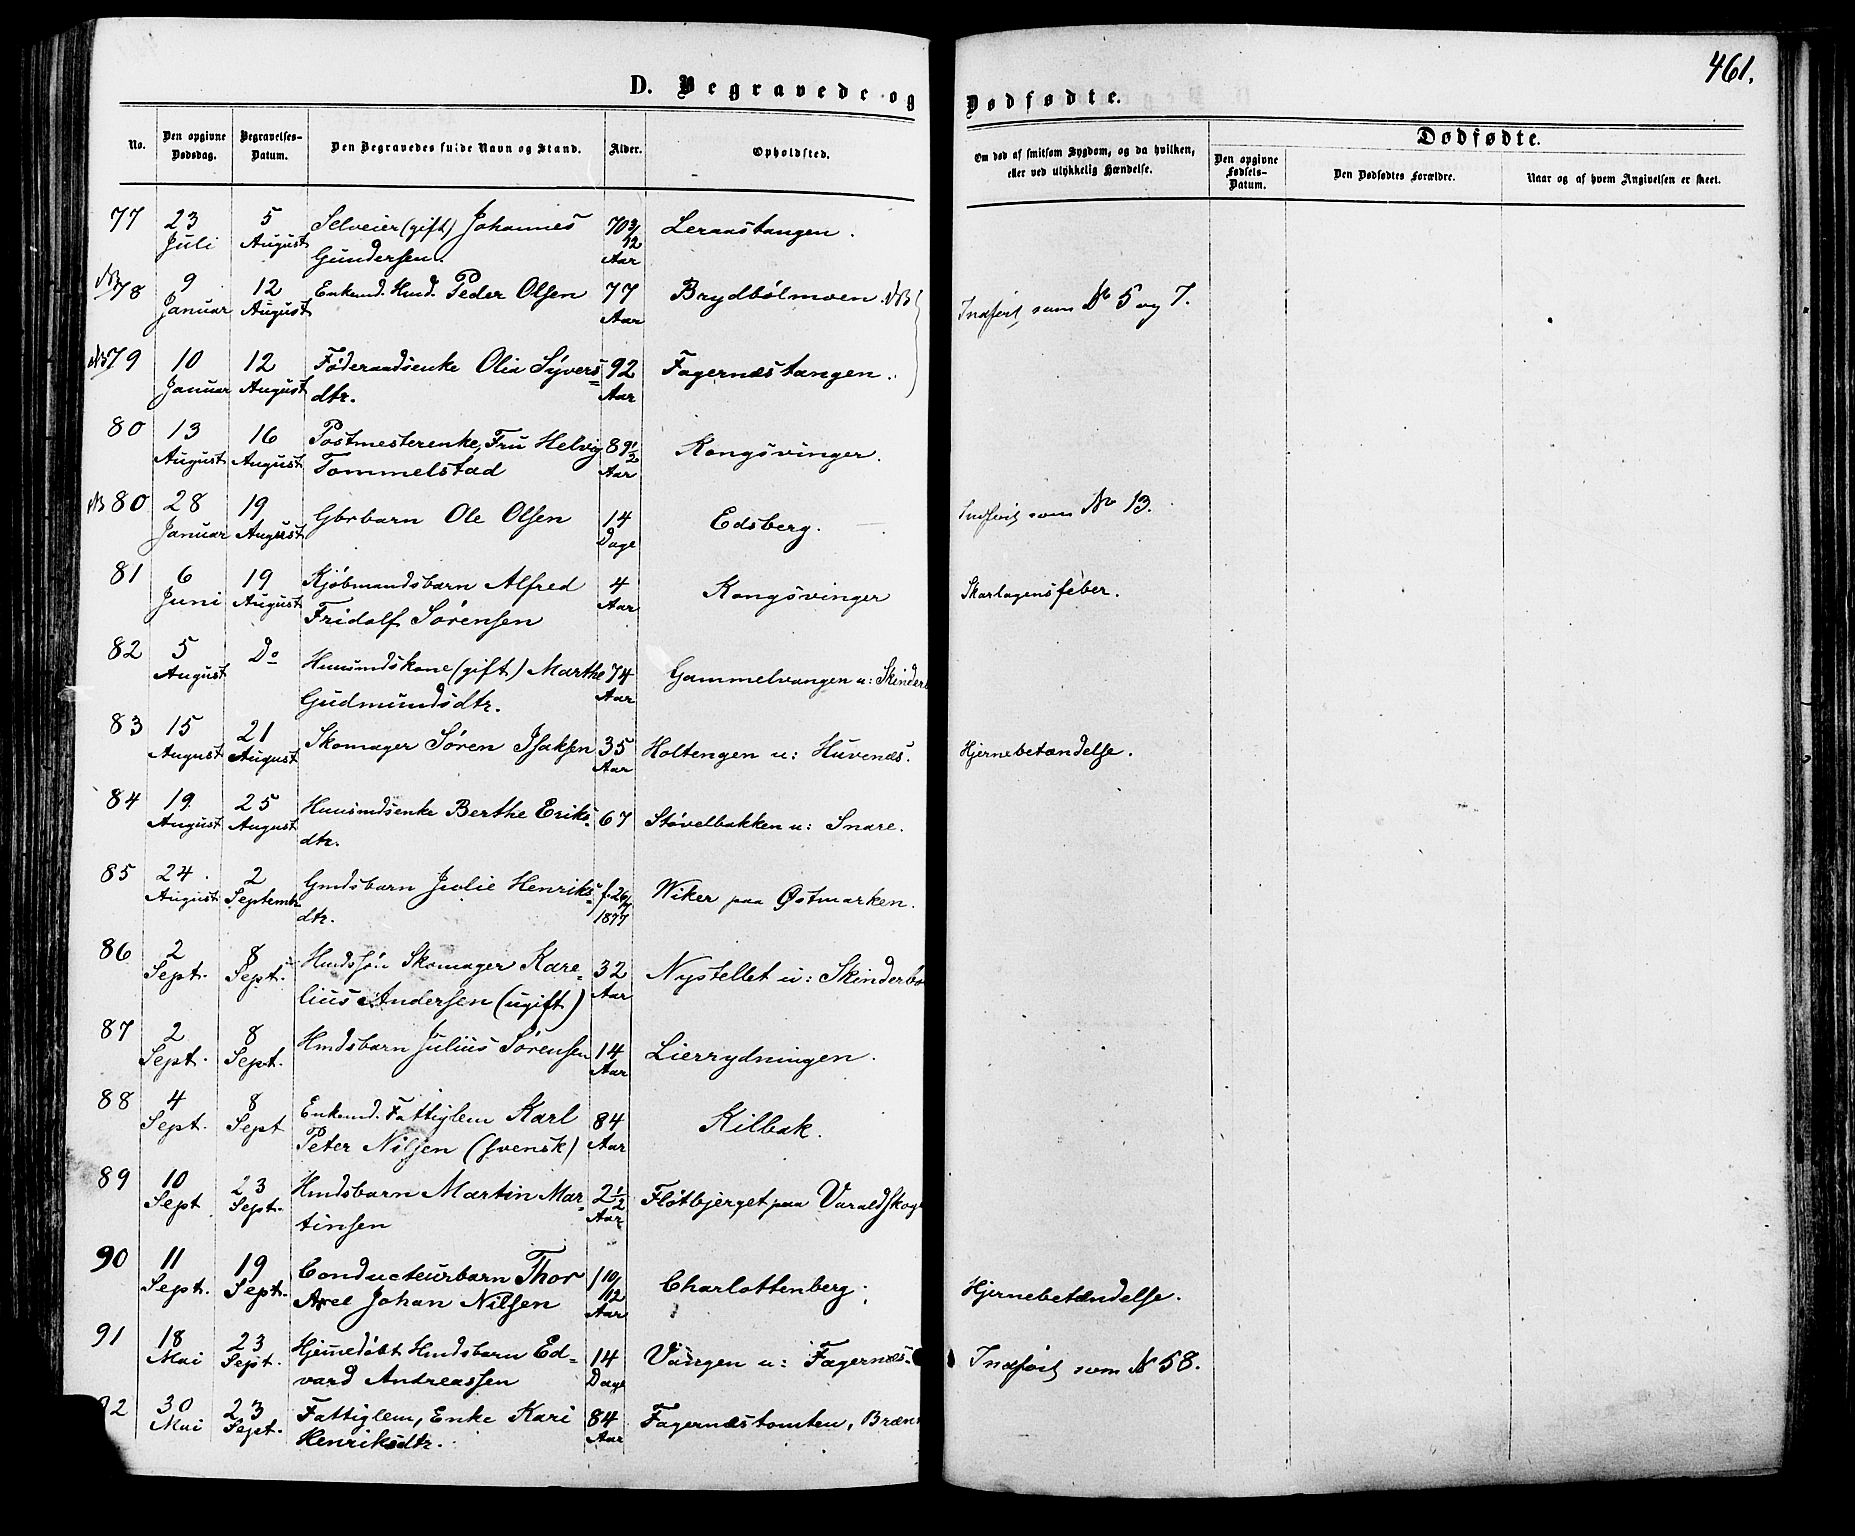 461.
D. Begravede og Dødfødte.
No. Den opgivne Dødsdag. Begravelses-Datum. Den Begravedes fulde Navn og Stand. Alder. Opholdsted. Om død af smitsom Sygdom, og da hvilken, eller ved ulykkelig Hændelse. Dødfødte.
Den opgivne Fødsels-Datum. Den Dødfødtes Forældre. Naar og af hvem Angivelsen er skeet.
77 23 5 Selveier (gift) Johannes 70 3/12 Leraastangen.
Juli August Gundersen. Aar
NB 78 9 12 Enkemd. Hmd. Peder Olsen 77 Brydbølmoen. NB Indført som No 5 og 7.
Januar August Aar
NB 79 10 12 Føderaadsenke Olia Syvers= 92 Fagernæstangen.
Januar August dtr. Aar
80 13 16 Postmesterenke, Fru Helvig 89 1/2 Kongsvinger.
August August Tommelstad Aar
NB 80 28 19 Gbrbarn Ole Olsen 14 Edsberg. Indført som No 13.
Januar August Dage
81 6 19 Kjøbmandsbarn Alfred 4 Kongsvinger Skarlagensfeber.
Juni August Fridolf Sørensen Aar
82 5 Do Huusmdskone (gift) Marthe 74 Gammelvangen u: Skinder
August Gudmundsdtr. Aar
83 15 21 Skomager Søren Isaksen 35 Holtengen u: Huvenæs. Hjernebetændelse.
August August Aar
84 19 25 Huusmdsenke Berthe Eriks= 67 Støvelbakken u: Snare.
August August dtr.
85 24 2 Gmdsbarn Julie Henriks= f. 26/7 Wiker paa Østmarken.
August Septembr dtr. 1877
86 2 8 Hmdssøn Skomager Kare= 32 Nystellet u: Skinderbø
Sept. Sept. lius Andersen (ugift) Aar
87 2 8 Hmdsbarn Julius Sørensen 14 Lierrydningen.
Sept. Sept. Aar
88 4 8 Enkemd. Fattiglem Karl 84 Kilbak.
Sept. Sept Peter Nilsen (svensk) Aar
89 10 23 Hmdsbarn Martin Mar= 2 1/2 Fløtbjerget paa Varaldskog
Sept Sept. tinsen Aar
90 11 19 Conducteurbarn Thor 1 10/12 Charlottenberg. Hjernebetændelse.
Sept. Sept. Axel Johan Nilsen Aar
91 18 23 Hjemedøbt Hmdsbarn Ed= 14 Vangen u: Fagernæs. Indført som No 58.
Mai Sept. vard Andreassen Dage
92 30 23 Fattiglem, Enke Kari 84 Fagernæstomten, Bræn
Mai Sept. Henriksdtr. Aar